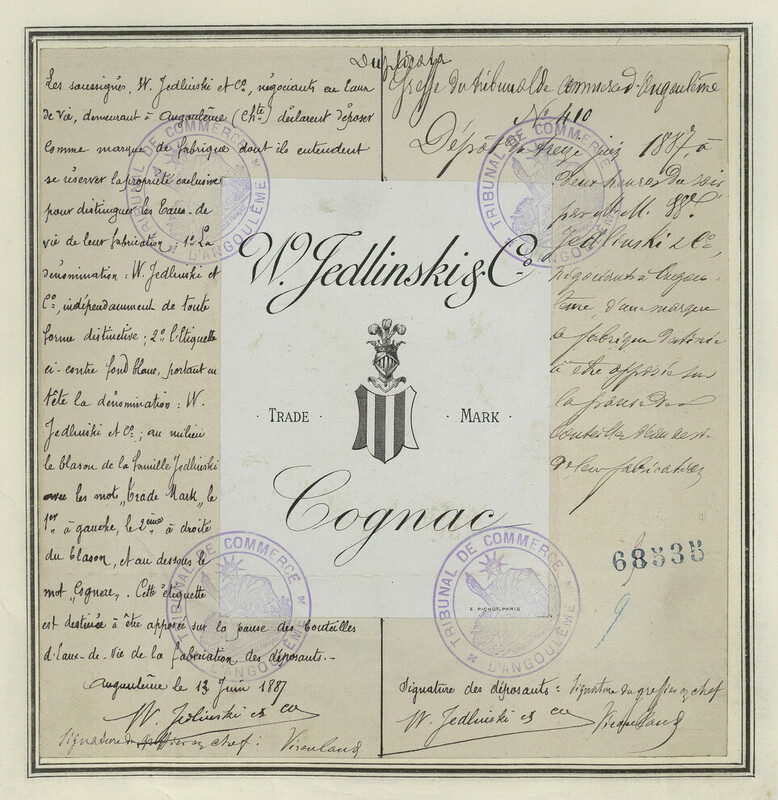 Duplicata
Les soussignés, W. Jedlinski et Co, négociants en Eaux
de Vie, demeurant à Angoulême (Chte) déclarent déposer
comme marque de fabrique dont ils entendent
se réserver la propriété exclusive
pour distinguer les Eaux-de-
vie de leur fabrication: 1o La
dénomination: W. Jedlinski et
Co, indépendamment de toute
forme distinctive; 2o l'étiquette
ci-contre fond blanc, portant en
tête la dénomination: W.
Jedlinski et Co; au milieu
le blason de la famille Jedlinski
avec les mots „Trade Mark", le
1er à gauche, le 2ème à droite
du blason, et au dessous le
mot „Cognac„. Cette étiquette
est destinée à être apposée sur la panse des bouteilles
d'Eaux-de-Vie de la fabrication des déposants.-
Angoulême le 13 Juin 1887
W. Jedlinski et Co
Signature du greffier en chef:
Greffe du tribunal de commerce d'Angoulême
No 410
Dépôt du treize juin 1887, à
deux heures du soir
par M. M. W.
Jedlinski & Co,
négociants à Angou-
lême, d'une marque
de fabrique destinée
à être apposée sur
la panse des
bouteilles d'eau de vie
de leur fabrication
W. Jedlinski & Co
TRADE MARK
Cognac
E. PICHOT, PARIS
68535
9
Signature des déposants: Signature du greffier en chef
W. Jedlinski et Co
TRIBUNAL DE COMMERCE D'ANGOULÊME
TRIBUNAL DE COMMERCE D'ANGOULÊME
TRIBUNAL DE COMMERCE D'ANGOULÊME
TRIBUNAL DE COMMERCE D'ANGOULÊME